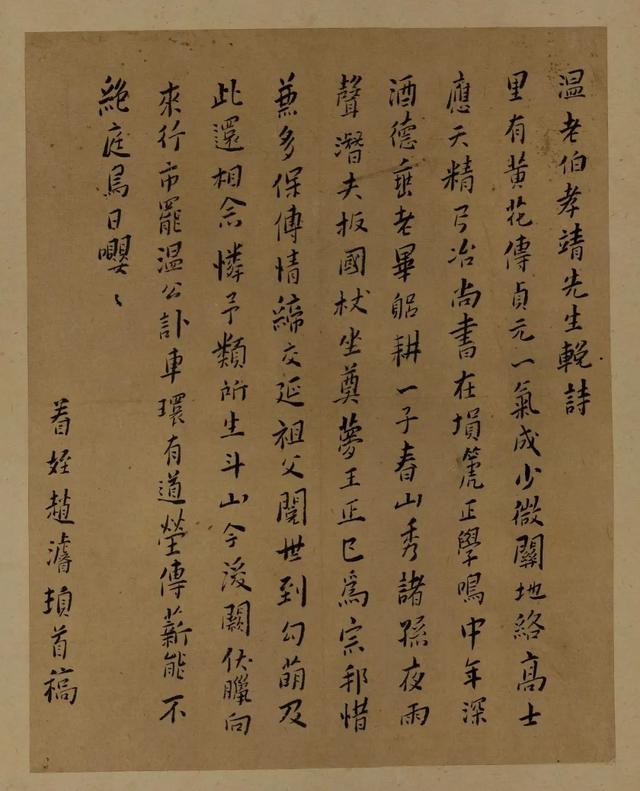 温老伯孝靖先生輓詩
里有黄花傳貞元一氣成少微關地絡高士
應天精弓冶尚書在塤篪正學鳴中年深
酒德垂老畢躬耕一子春山秀諸孫夜雨
聲潛夫扳國杖坐奠夢王正已為宗邦惜
兼多保傅情締交延祖父閱世到勾萌及
此還相念憐予類所生斗山今漫闕伏臘向
來行市罷温公訃車環有道塋傳薪能不
絶庭舄日嚶〻
眷姪趙濬頓首稿